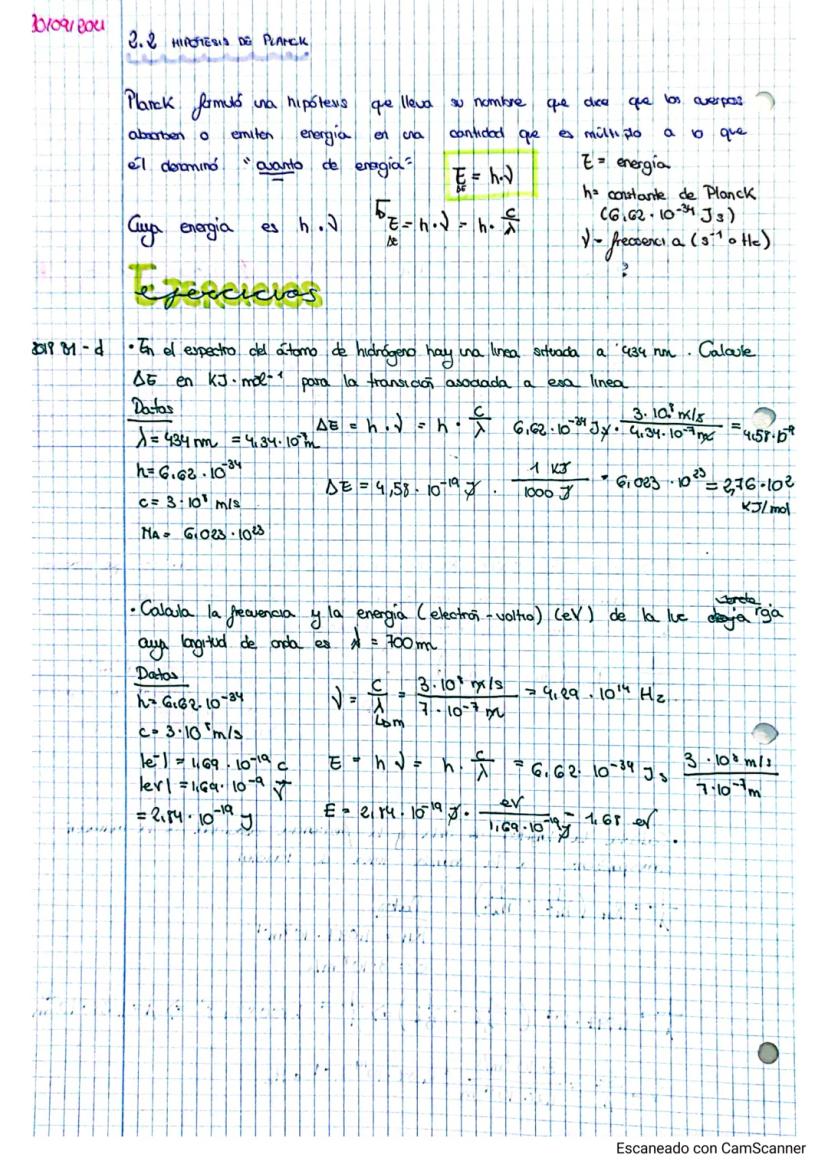 30/09/2021
2.2 HIPÓTESIS DE PLANCK
Planck formuló una hipótesis que lleva su nombre que dice que los cuerpos
absorben o emiten energía en una cantidad que es múltiplo a lo que
él denominó "cuanto de energía"
E = h·ν
ΔE
E = energía
h = constante de Planck
(6,62 · 10⁻³⁴ Js)
ν = frecuencia (s⁻¹ o Hz)
?
Cuya energía es h·ν
E = h·ν = h· c/λ
ΔE
EJERCICIOS
ejercicios
2019 J1-d
· En el espectro del átomo de hidrógeno hay una linea situada a 434 nm. Calcule
ΔE en KJ·mol⁻¹ para la transición asociada a esa linea
Datos
λ = 434 nm = 4,34·10⁻⁷ m
ΔE = h·ν = h· c/λ 6,62·10⁻³⁴ Js · 3·10⁸ m/s / 4,34·10⁻⁷ m = 4,58·10⁻¹⁹
h = 6,62·10⁻³⁴
c = 3·10⁸ m/s
ΔE = 4,58·10⁻¹⁹ J · 1 KJ / 1000 J · 6,023·10²³ = 2,76·10²
KJ/mol
NA = 6,023·10²³
· Calcula la frecuencia y la energía (electrón-voltio) (eV) de la luz roja
cuya longitud de onda es λ = 700 m
Datos
h = 6,62·10⁻³⁴
ν = c/λ = 3·10⁸ m/s / 7·10⁻⁷ m = 4,29·10¹⁴ Hz
c = 3·10⁸ m/s
|e⁻| = 1,69·10⁻¹⁹ c
E = h ν = h· c/λ = 6,62·10⁻³⁴ Js 3·10⁸ m/s / 7·10⁻⁷ m
= 2,84·10⁻¹⁹ J
E = 2,84·10⁻¹⁹ J · eV / 1,69·10⁻¹⁹ J = 1,68 eV
Escaneado con CamScanner